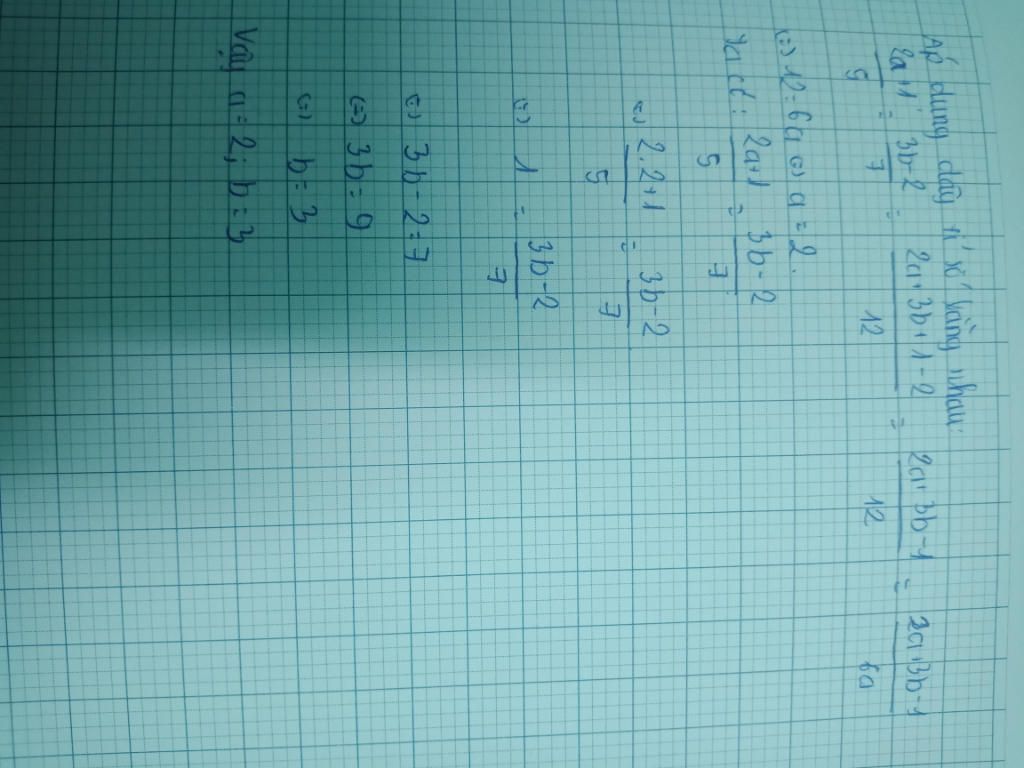 Áp dụng dãy tỉ số bằng nhau:
2a+1/5 = 3b-2/7 = 2a+3b+1-2/12 = 2a+3b-1/12 = 2a+3b-1/6a
(=) 12=6a (=) a=2.
Ta có: 2a+1/5 = 3b-2/7
(=) 2.2+1/5 = 3b-2/7
(=) 1 = 3b-2/7
(=) 3b-2=7
(=) 3b=9
(=) b=3
Vậy a=2; b=3